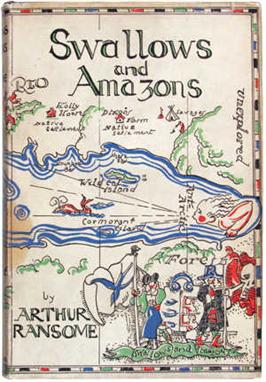 Swallows
and
Amazons
RIO
Holly
Howe
Native
settlement
Dixon's
Farm
Native
settlement
unexplored
Wild Cat
Island
Cormorant
Island
Forest
by
ARTHUR
RANSOME